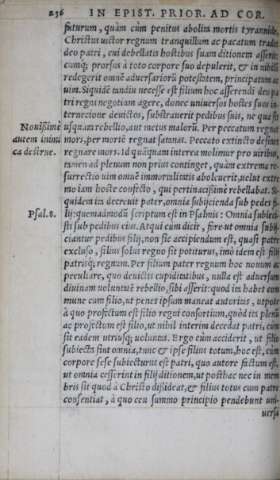 236 IN EPIST. PRIOR. AD COR.
futurum, quàm cùm penitus abolita mortis tyrannide,
Christus uictor regnum tranquillum ac pacatum tradet
deo patri, cui debellatis hostibus suam ditionem asseruit:
cumq; prorsus à toto corpore suo depulerit, & in nihilũ
redegerit omnẽ aduersariorũ potestatem, principatum ac
uim. Siquidẽ tandiu necesse est filium hoc asserendi deo pa
tri regni negotium agere, donec uniuersos hostes suos in
ternecione deuictos, substrauerit pedibus suis, ne qua sit
Nouissime usquam rebellio, aut metus malorũ. Per peccatum regnat
autem inimi mors, per mortẽ regnat satanas. Peccato extincto desinet
ca destrue. regnare mors. Id quãquam interea molimur pro uiribus,
tamen ad plenum non prius continget, quàm extrema re-
surrectio uim omnẽ mortalitatis aboleuerit, uelut extre
mo iam hoste confecto, qui pertinacissimè rebellabat. Si
quidem ita decreuit pater, omnia subijcienda sub pedes fi-
Psal. 8. lij: quemadmodũ scriptum est in Psalmis: Omnia subieci-
sti sub pedibus eius. Atqui cùm dicit, fore ut omnia subij-
ciantur pedibus filij, non sic accipiendum est, quasi patre
excluso, filius solus regno sit potiturus, imò idem est filij
patrisq; regnum. Per filium pater regnum hoc nomini ac
peculiare, quo deuictis cupiditatibus, nulla est aduersum
diuinam uoluntatẽ rebellio, sibi asserit: quod ita habet com
mune cum filio, ut penes ipsum maneat autoritas, utpote
à quo profectum est filio regni consortium, quòd ita plenũ
ac profectum est filio, ut nihil interim decedat patri, cùm
sit eadem utriusq; uoluntas. Ergo cùm acciderit, ut filio
subiecta sint omnia, tunc & ipse filius totum, hoc est, cum
corpore sese subiecturus est patri, quo autore factum est,
ut omnia cesserint in filij ditionem, ut posthac nec in mem
bris sit quod à Christo dissideat, & filius totus cum patre
consentiat, à quo ceu summo principio pendebunt uni-
uersa